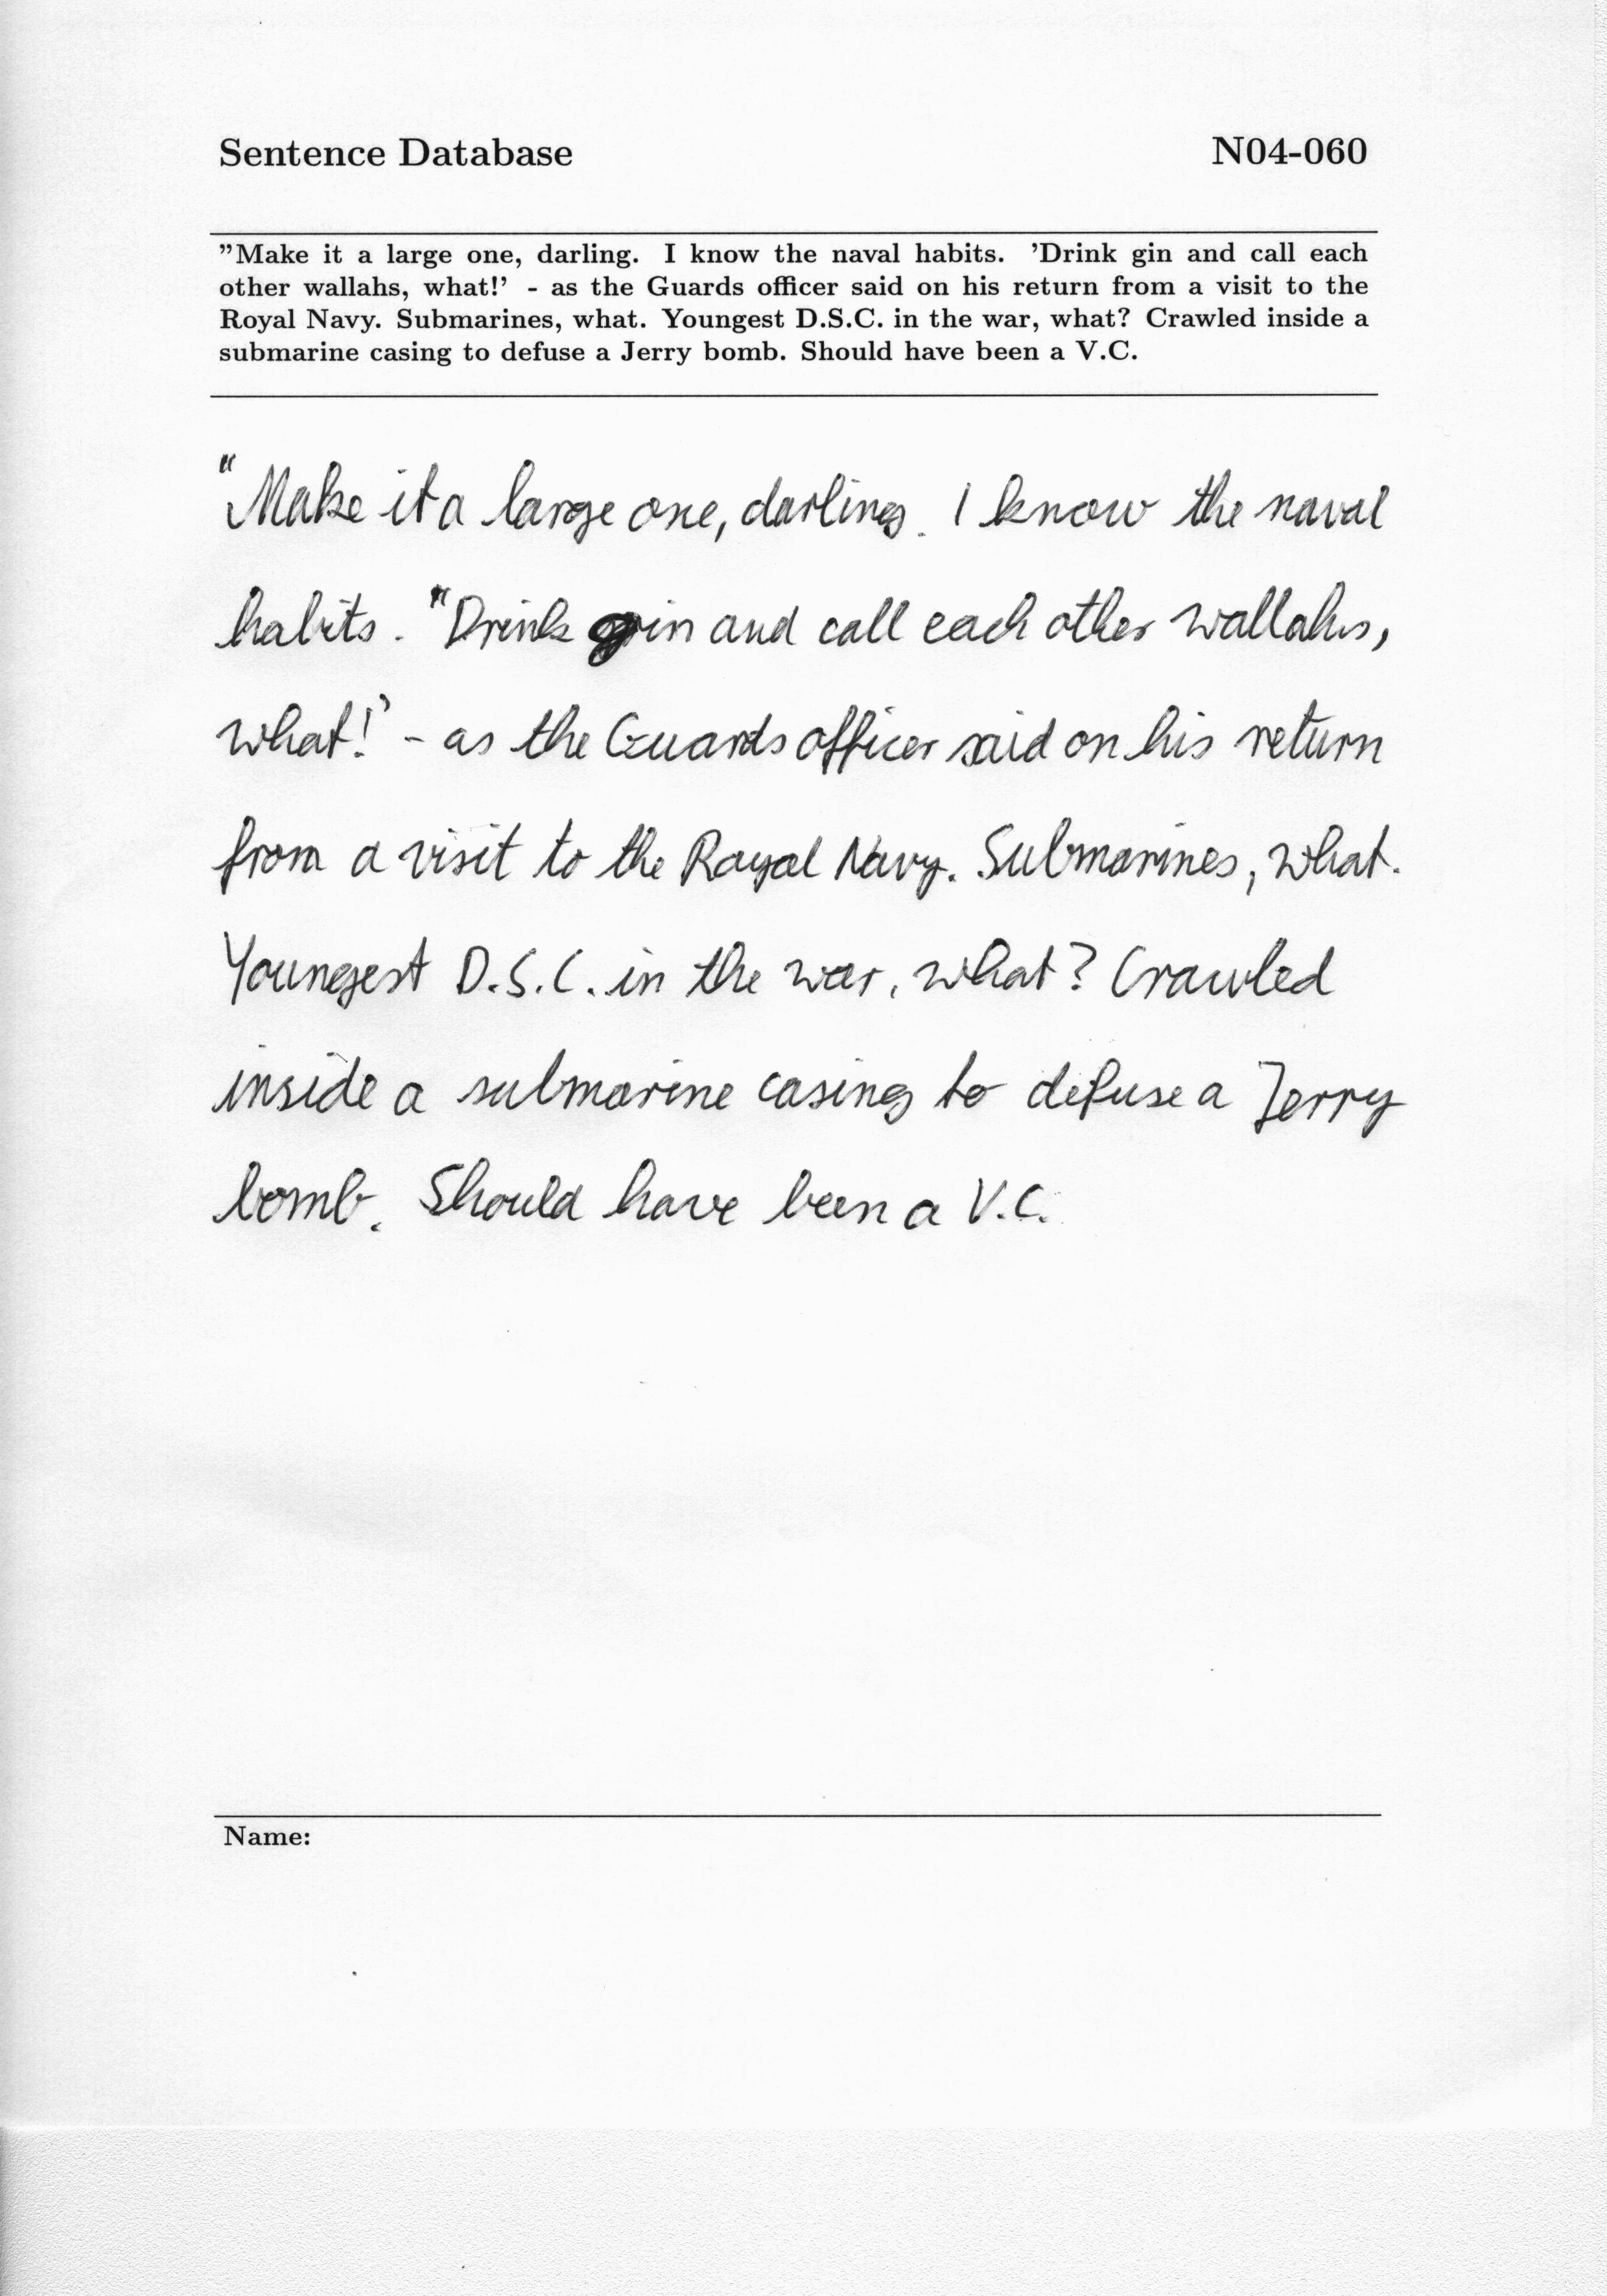 Sentence Database N04-060
"Make it a large one, darling. I know the naval habits. 'Drink gin and call each
other wallahs, what!' - as the Guards officer said on his return from a visit to the
Royal Navy. Submarines, what. Youngest D.S.C. in the war, what? Crawled inside a
submarine casing to defuse a Jerry bomb. Should have been a V.C.
"Make it a large one, darling. I know the naval
habits. "Drink gin and call each other wallahs,
what!' - as the Guards officer said on his return
from a visit to the Royal Navy. Submarines, what.
Youngest D.S.C. in the war, what? Crawled
inside a submarine casing to defuse a Jerry
bomb. Should have been a V.C.
Name: